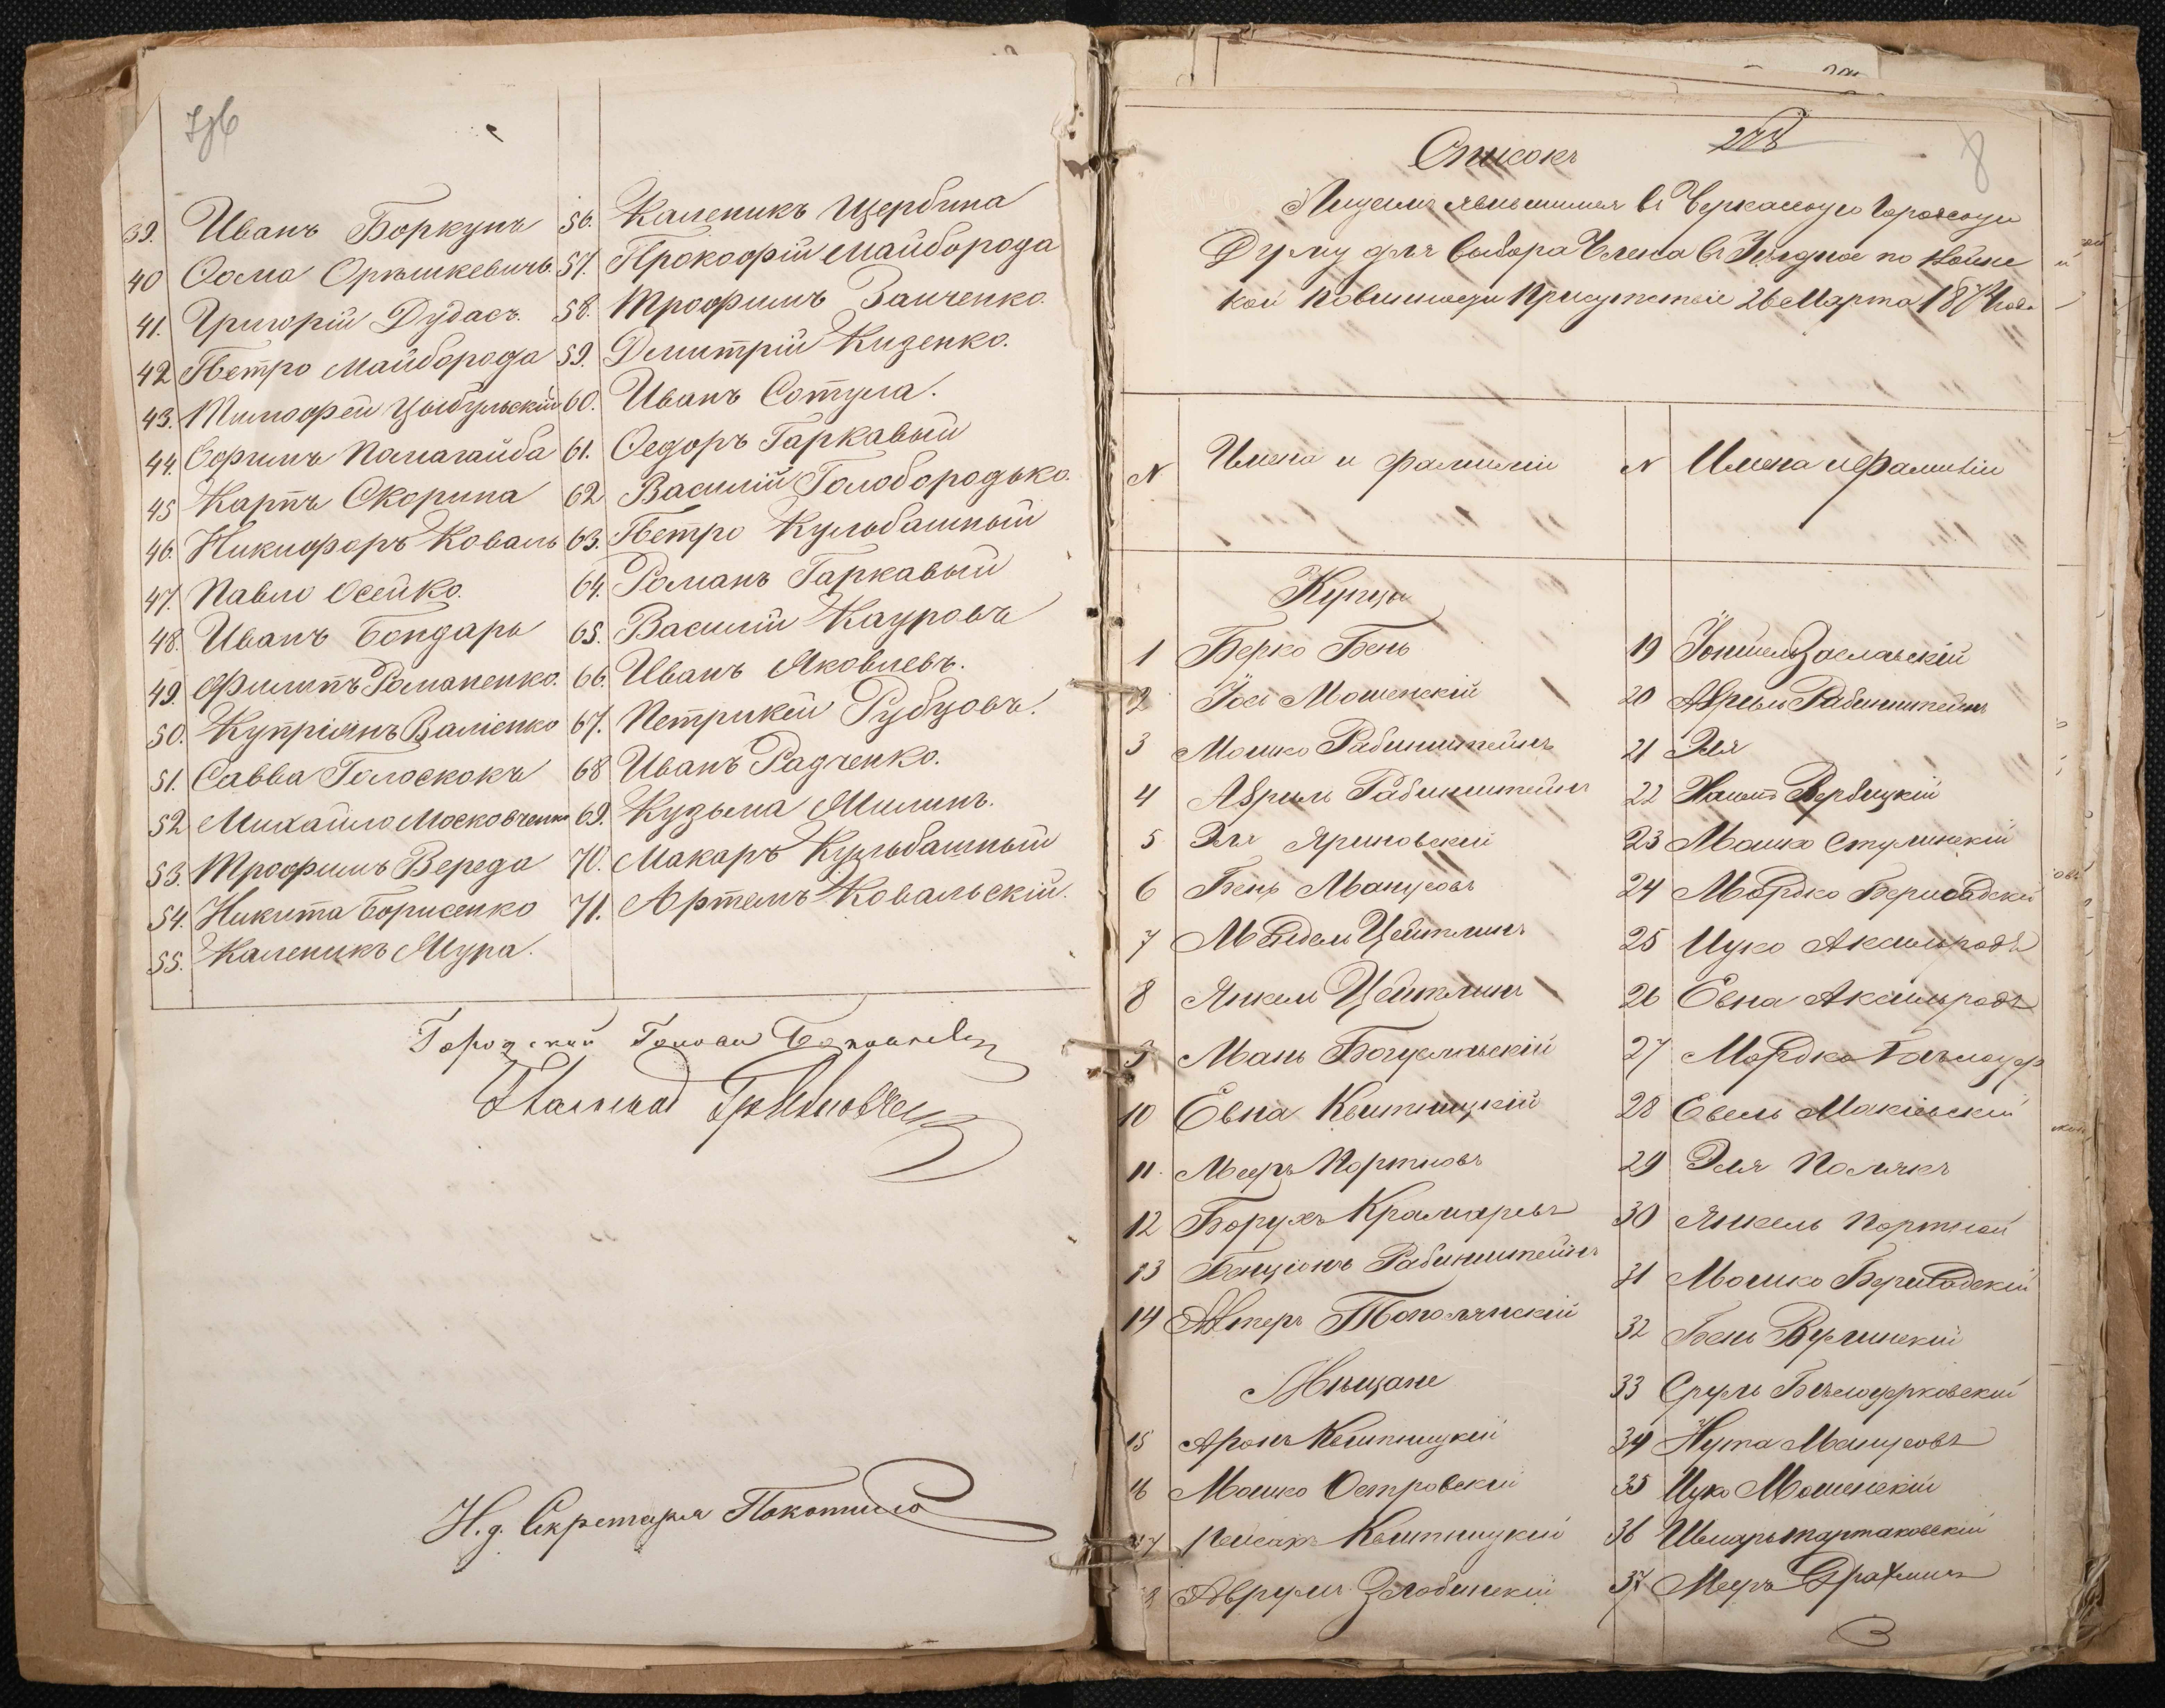 39. Иванъ Боркунъ
40 Ѳома Орѣшкевичъ.
41. Григорій Дудасъ.
42 Петро Майборода
43. Тимоофей Цыбульскій
44. Софимъ Памагайба
45 Карпъ Скорина
46. Никифоръ Коваль
47. Павло Осейко.
48. Иванъ Бондарь
49. Филипъ Романенко.
50. Купріянъ Валіенко
51. Савва Голоскокъ
52 Михайло Московченко
53. Трофимъ Вереда
54. Никита Борисенко
55. Каленикъ Мура.
56. Каленикъ Щербина
57. Прокофій Майборода
58. Трофимъ Заиченко.
59. Дмитрій Кизенко.
60. Иванъ Сотула.
61. Ѳедоръ Гаркавый
62 Василій Голобородько.
63. Петро Кульбашный
64. Романъ Гаркавый
65. Василій Кауровъ
66. Иванъ Яковлевъ.
67. Петрикей Рубцовъ.
68 Иванъ Радченко.
69. Кузьма Милинъ.
70. Макаръ Кульбашный
71. Артемъ Ковальскій.
Городской Голова
Н. д. Секретаря Покотило
8
Списокъ
Лицамъ явившимся въ Черкаскую Городскую
Думу для выбора Члена въ Уѣздное по воинс
кой повинности Присутствіе 26 Марта 1874 года
N Имена и фамиліи N Имена и Фамиліи
Купцы
1 Берко Бень
2 Іось Мошенскій
3 Мошко Рабинштейнъ
4 Авриль Рабинштейнъ
5 Эля Яриновскій
6 Бень Манусовъ
7 Мендель Цейтлинъ
8 Янкель Цейтлинъ
9 Мань Богуславскій
10 Евна Квитницкій
11. Мееръ Портновъ
12 Борухъ Крамаревъ
13 Бенціонъ Рабинштейнъ
14 Альтеръ Тополянскій
Мѣщане
15 Аронъ Квитницкій
16 Мошко Островскій
17 Квитницкій
Аврумъ Злобинскій
19 Заславскій
20 Авриль Рабинштейнъ
21 Эля
22 Вербицкій
23 Мошко Стулинскій
24 Мордко Бершадскій
25 Ицко Аксельродъ
26 Евна Аксельродъ
27 Мордко
28 Евель Макіевскій
29 Эля Полякъ
30 Янкель Портной
31 Мошко Бершадскій
32 Бень
33 Сруль Бѣлоцерковскій
34 Нута Манусовъ
35 Ицко Мошенскій
36 Тартаковскій
37 Мееръ